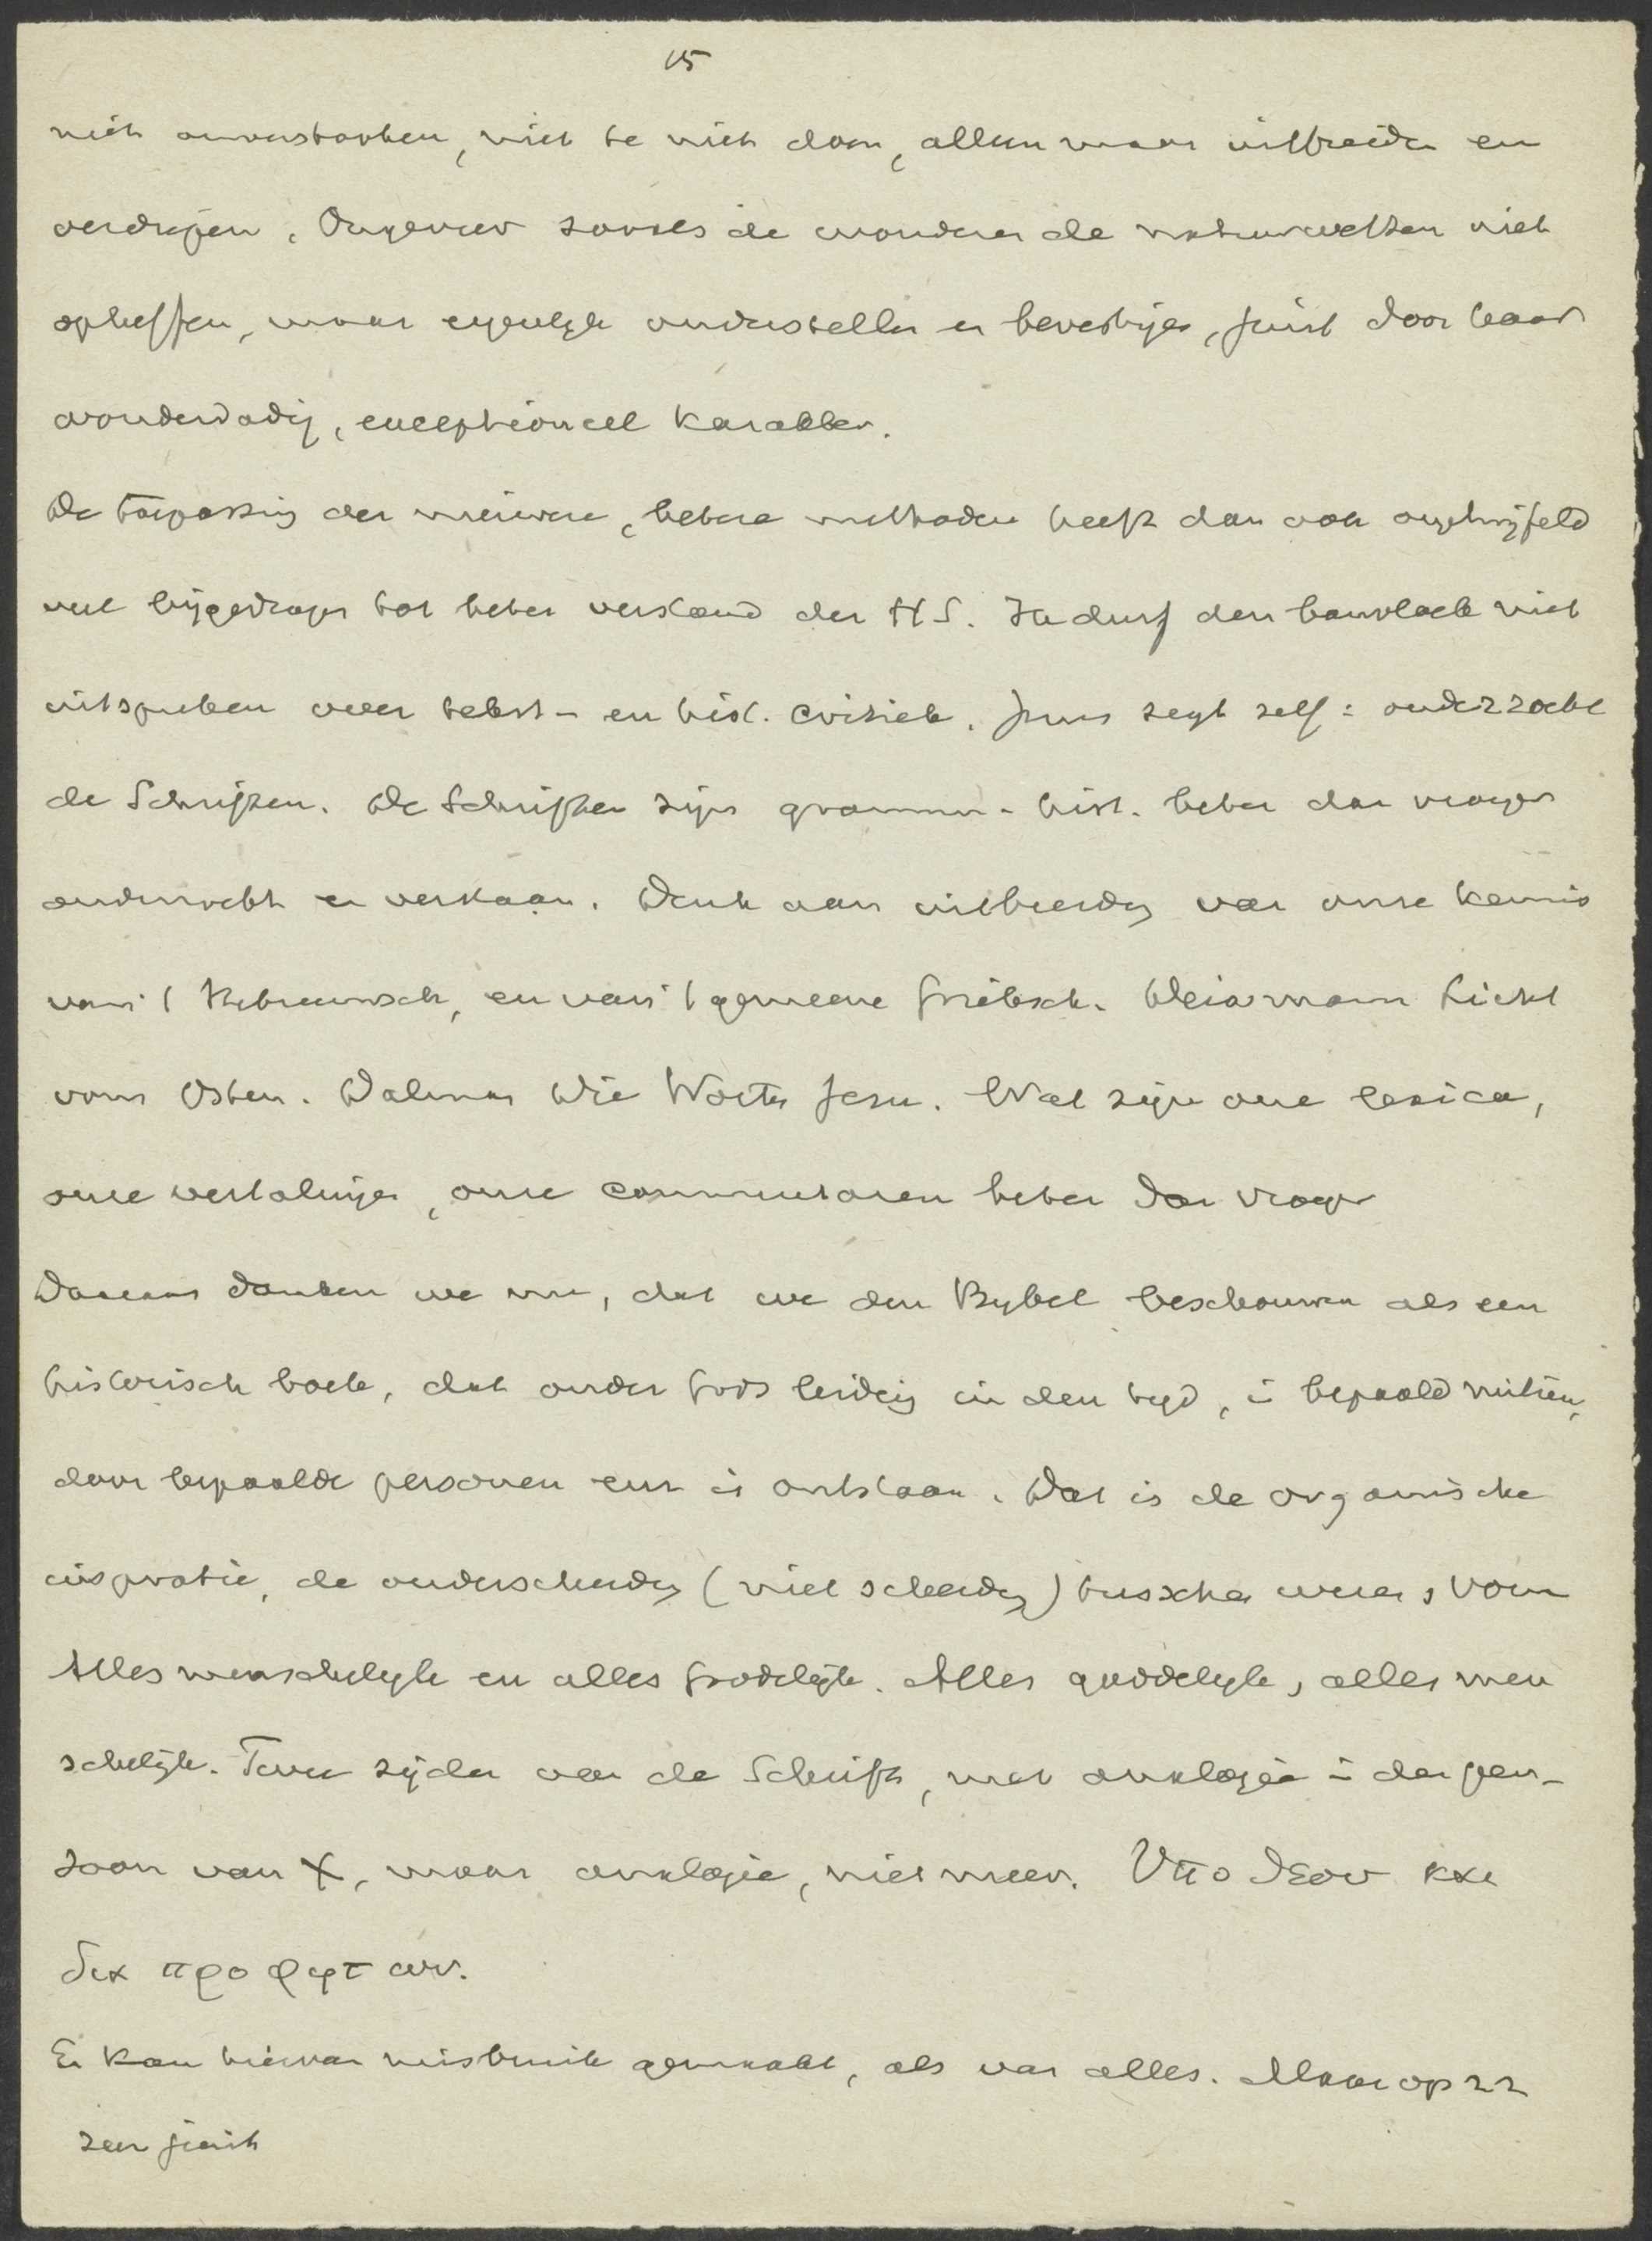 15
niet onvastbaar, niet te niet doen, alleen maar uitbreiden en
verdiepen. Ongeveer zooals de wonderen de natuurwetten niet
opheffen, maar eigenlijk onderstellen en bevestigen, juist door haar
wonderdadig, exceptioneel karakter.
De toepassing der nieuwere, betere methoden heeft dan ook ongetwijfeld
veel bijgedragen tot beter verstand der H S. Ik durf den banvloek niet
uitspreken over tekst- en hist. critiek. Jezus zegt zelf: onderzoekt
de Schriften. De Schriften zijn gramm.- hist. beter dan vroeger
onderzocht en verstaan. Denk aan uitbreiding van onze kennis
van 't Hebreeuwsch, en van 't gemeene Grieksch. Deissmann Licht
vom Osten. Dalman Die Worte Jesu. Wat zijn onze lexica,
onze vertalingen, onze commentaren beter dan vroeger
Daaraan danken we nu, dat we den Bijbel beschouwen als een
historisch boek, dat onder Gods leiding in den tijd, in bepaald milieu,
door bepaalde personen enz is ontstaan. Dat is de organische
inspiratie, de onderscheiding (niet scheiding) tusschen wezen, vorm
Alles menschelijk en alles goddelijk. Alles goddelijk, alles men
schelijk. Twee zijden van de Schrift, met analogie in den per-
soon van X, maar analogie, niet meer. Ὑπο θεου και
δια προφητων.
Er kan hiervan misbruik gemaakt, als van alles. Maar op zz
zeer juist